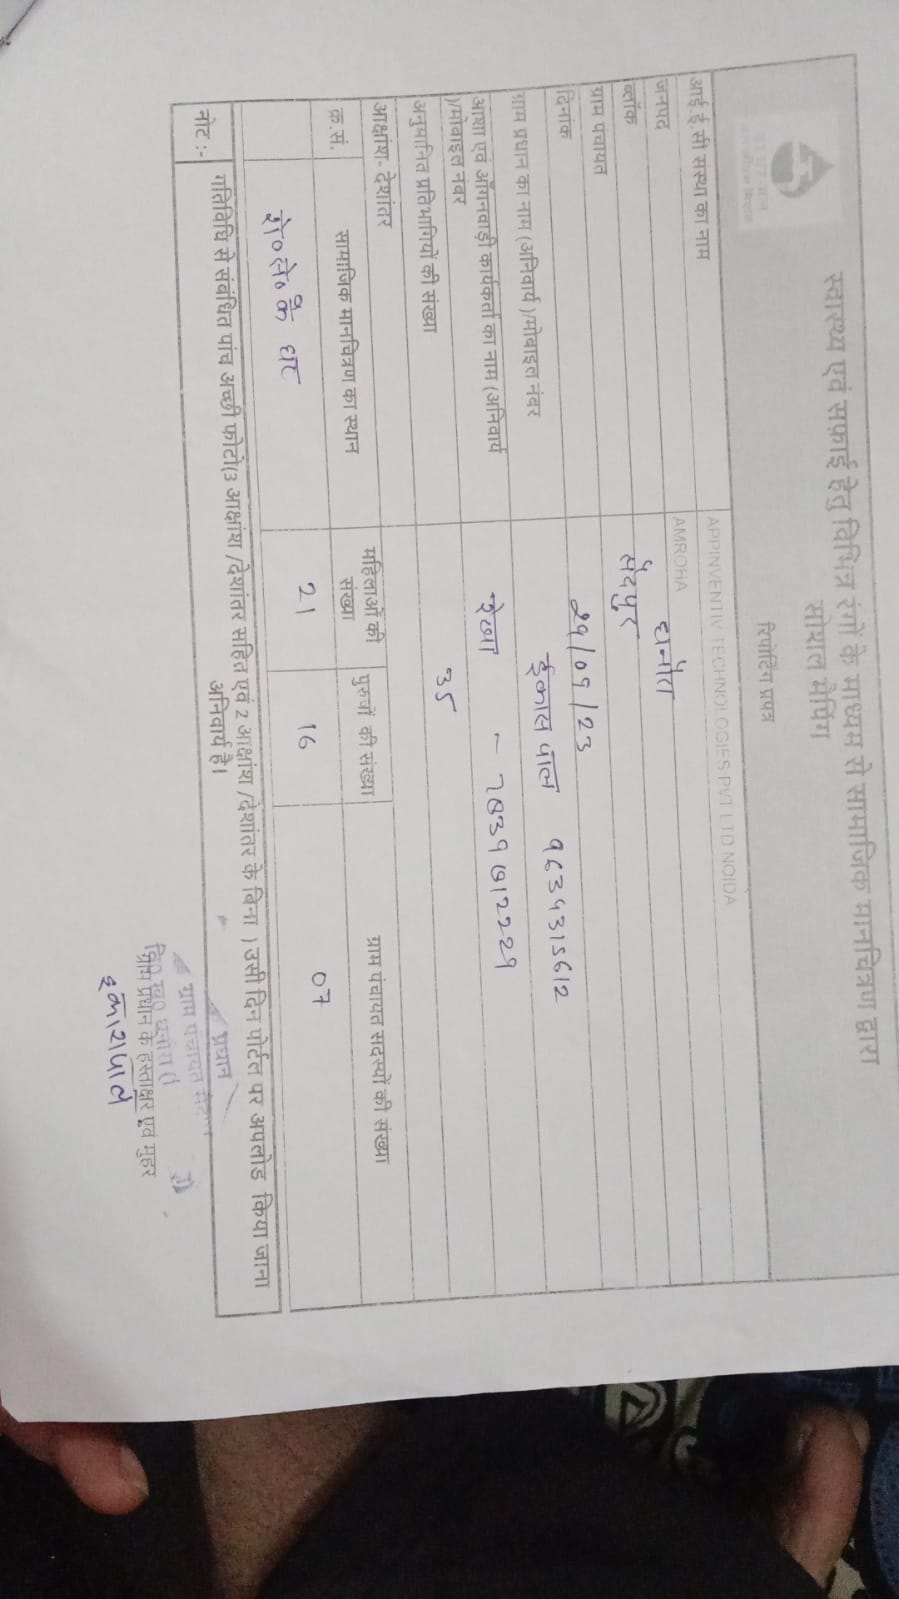 स्वास्थ्य एवं सफ़ाई हेतु विभिन्न रंगों के माध्यम से सामाजिक मानचित्रण द्वारा
सोशल मैपिंग
रिपोर्टिंग प्रपत्र
आई.ई.सी संस्था का नाम APPINVENTIV TECHNOLOGIES PVT LTD NOIDA
जनपद AMROHA
ब्लॉक
ग्राम पंचायत सैदपुर
दिनांक 29/09/23
ग्राम प्रधान का नाम (अनिवार्य)/मोबाइल नंबर 9634315612
आशा एवं आँगनवाड़ी कार्यकर्ता का नाम (अनिवार्य
)/मोबाइल नंबर
अनुमानित प्रतिभागियों की संख्या 35
आक्षांश-देशांतर
क्र.सं. सामाजिक मानचित्रण का स्थान महिलाओं की संख्या पुरुषों की संख्या ग्राम पंचायत सदस्यों की संख्या
के घर 21 16 07
नोट :- गतिविधि से संबंधित पांच अच्छी फोटो(3 आक्षांश /देशांतर सहित एवं 2 आक्षांश /देशांतर के बिना ) उसी दिन पोर्टल पर अपलोड किया जाना
अनिवार्य है।
प्रधान
ग्राम पंचायत
ग्राम प्रधान के हस्ताक्षर एवं मुहर